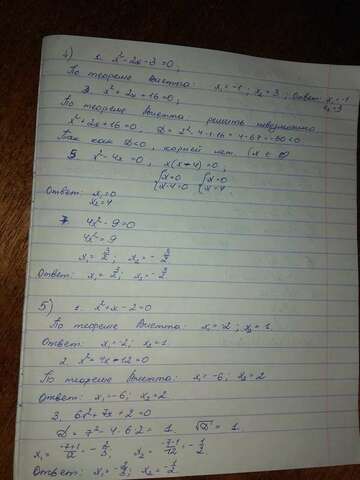 4) 1. x²-2x-3=0;
По теореме Виетта: x₁=-1; x₂=3; Ответ: x₁=-1 x₂=3
3. x²+2x+16=0;
По теореме Виетта: решить невозможно
x²+2x+16=0, D=2²-4·1·16=4-64=-60<0
Так как D<0, корней нет. (x ∈ ∅)
5 x²-4x=0, x(x-4)=0;
{x=0 {x=0
{x-4=0 {x=4.
Ответ: x₁=0
x₂=4
7 4x²-9=0
4x²=9
x₁=3/2, x₂=-3/2
Ответ: x₁=3/2; x₂=-3/2
5) 1. x²+x-2=0
По теореме Виетта: x₁=-2; x₂=1.
Ответ: x₁=-2; x₂=1.
2. x²+4x-12=0
По теореме Виетта: x₁=-6; x₂=2
Ответ: x₁=-6; x₂=2
3. 6x²+7x+2=0
D=7²-4·6·2=1 √D=1.
x₁=-7+1/12=-2/3, x₂=-7-1/12=-1/2
Ответ: x₁=-2/3; x₂=-1/2